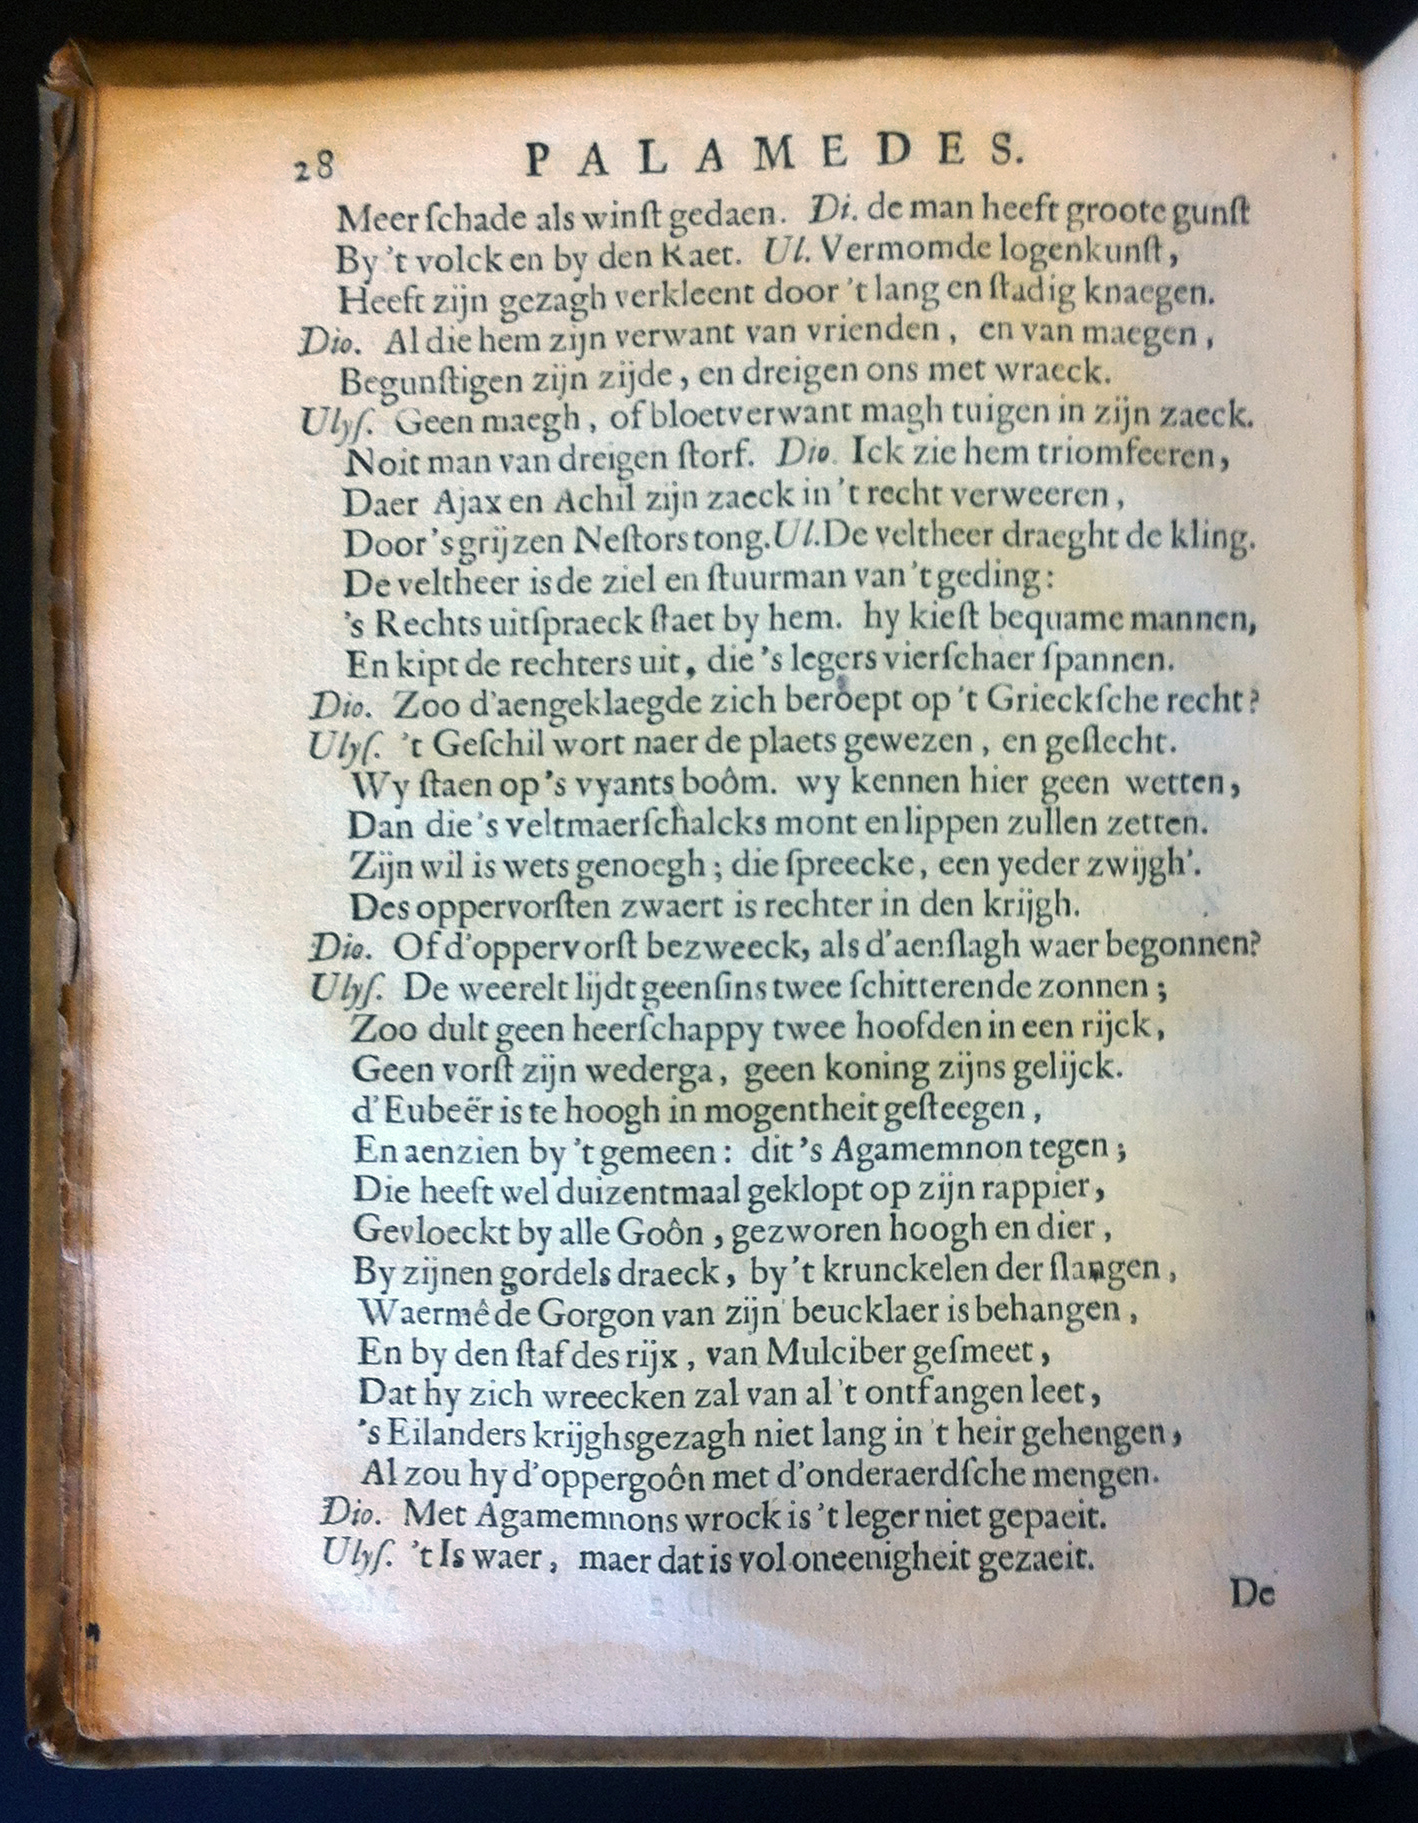 28 PALAMEDES.
Meer ſchade als winſt gedaen. Di. de man heeft groote gunſt
By 't volck en by den Raet. Ul. Vermomde logenkunſt,
Heeft zijn gezagh verkleent door 't lang en ſtadig knaegen.
Dio. Al die hem zijn verwant van vrienden, en van maegen,
Begunſtigen zijn zijde, en dreigen ons met wraeck.
Ulyſ. Geen maegh, of bloetverwant magh tuigen in zijn zaeck.
Noit man van dreigen ſtorf. Dio. Ick zie hem triomfeeren,
Daer Ajax en Achil zijn zaeck in 't recht verweeren,
Door 's grijzen Neſtors tong. Ul. De veltheer draeght de kling.
De veltheer is de ziel en ſtuurman van 't geding:
's Rechts uitſpraeck ſtaet by hem. hy kieſt bequame mannen,
En kipt de rechters uit, die 's legers vierſchaer ſpannen.
Dio. Zoo d'aengeklaegde zich beroept op 't Grieckſche recht?
Ulyſ. 't Geſchil wort naer de plaets gewezen, en geſlecht.
Wy ſtaen op 's vyants boôm. wy kennen hier geen wetten,
Dan die 's veltmaerſchalcks mont en lippen zullen zetten.
Zijn wil is wets genoegh; die ſpreecke, een yeder zwijgh'.
Des oppervorſten zwaert is rechter in den krijgh.
Dio. Of d'oppervorſt bezweeck, als d'aenſlagh waer begonnen?
Ulyſ. De weerelt lijdt geenſins twee ſchitterende zonnen;
Zoo dult geen heerſchappy twee hoofden in een rijck,
Geen vorſt zijn wederga, geen koning zijns gelijck.
d'Eubeër is te hoogh in mogentheit geſteegen,
En aenzien by 't gemeen: dit 's Agamemnon tegen;
Die heeft wel duizentmaal geklopt op zijn rappier,
Gevloeckt by alle Goôn, gezworen hoogh en dier,
By zijnen gordels draeck, by 't krunckelen der ſlangen,
Waermê de Gorgon van zijn beucklaer is behangen,
En by den ſtaf des rijx, van Mulciber geſmeet,
Dat hy zich wreecken zal van al 't ontfangen leet,
's Eilanders krijghsgezagh niet lang in 't heir gehengen,
Al zou hy d'oppergoôn met d'onderaerdſche mengen.
Dio. Met Agamemnons wrock is 't leger niet gepaeit.
Ulyſ. 't Is waer, maer dat is vol oneenigheit gezaeit.
De